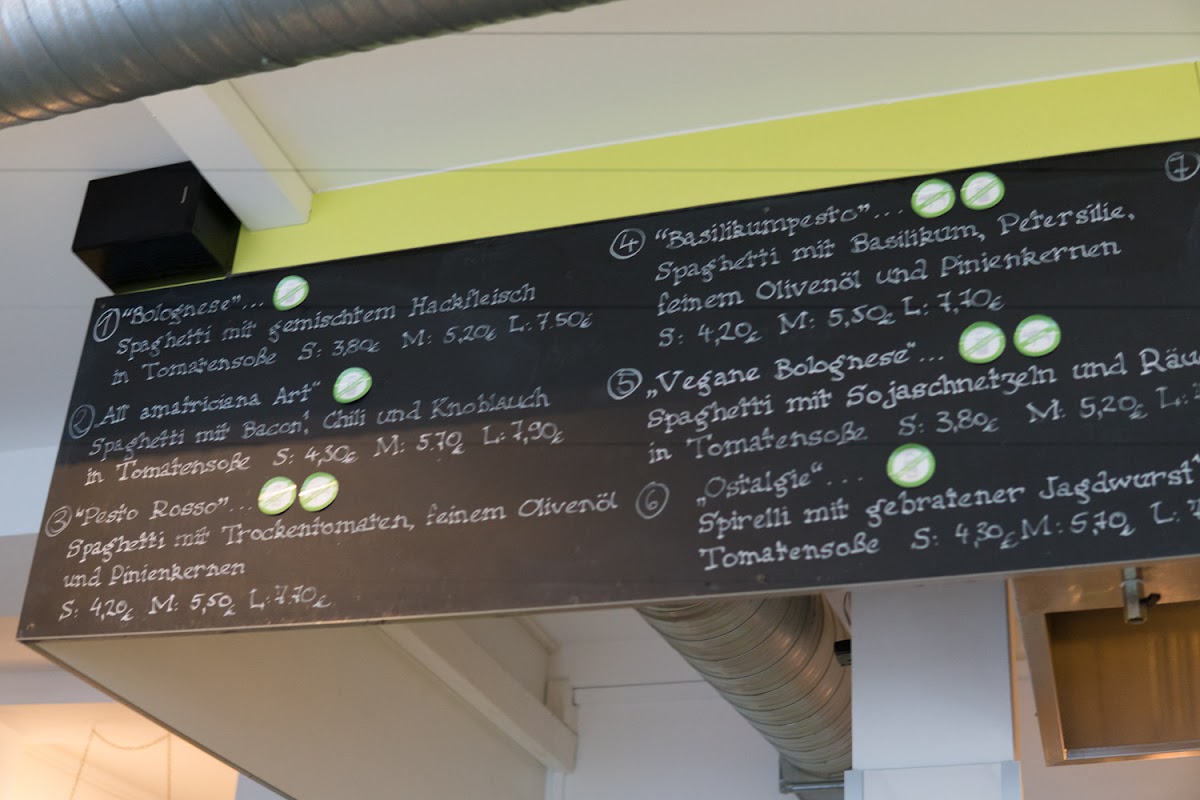 ① "Bolognese"...
Spaghetti mit gemischtem Hackfleisch
in Tomatensoße S: 3,80€ M: 5,20€ L: 7.50€
② „All' amatriciana Art"
Spaghetti mit Bacon, Chili und Knoblauch
in Tomatensoße S: 4,30€ M: 5.70€ L: 7,90€
③ "Pesto Rosso"...
Spaghetti mit Trockentomaten, feinem Olivenöl
und Pinienkernen
S: 4,20€ M: 5,50€ L: 7.70€
④ "Basilikumpesto"...
Spaghetti mit Basilikum, Petersilie,
feinem Olivenöl und Pinienkernen
S: 4,20€ M: 5,50€ L: 7,70€
⑤ „Vegane Bolognese"...
Spaghetti mit Sojaschnetzeln und
in Tomatensoße S: 3,80€ M: 5,20€ L:
⑥ „Ostalgie"...
Spirelli mit gebratener Jagdwurst
Tomatensoße S: 4,30€ M: 5,70€ L:
⑦